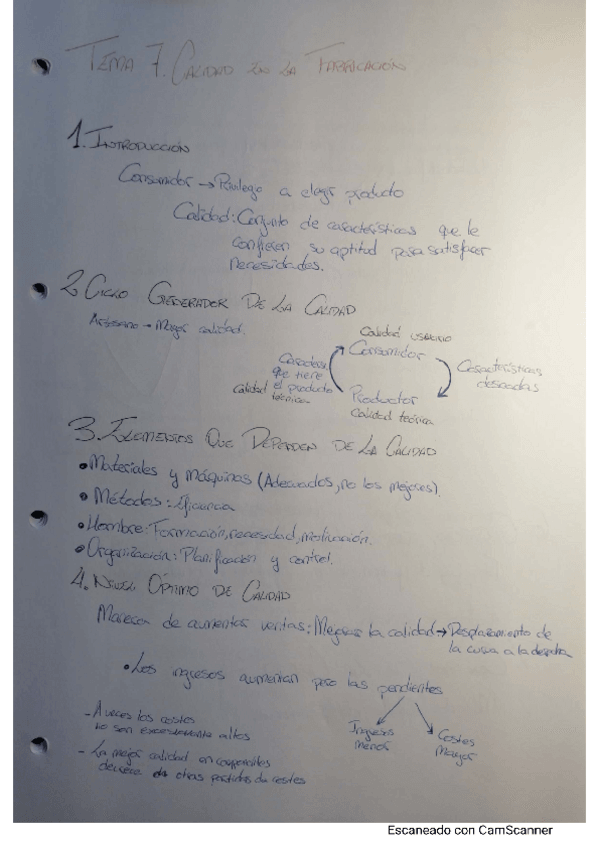 TEMA 7. CALIDAD EN LA FABRICACIÓN
1. INTRODUCCIÓN
Consumidor → Privilegio a elegir producto
Calidad: Conjunto de características que le
confieren su aptitud para satisfacer
necesidades.
2. CICLO GENERADOR DE LA CALIDAD
Artesano → Mayor calidad.
Calidad usuario
Consumidor
que tiene
el producto
Calidad técnica
Características
deseadas
Productor
Calidad teórica
3. ELEMENTOS QUE DEPENDEN DE LA CALIDAD
• Materiales y máquinas (Adecuados, no los mejores).
• Métodos: Eficiencia
• Hombre: Formación, necesidad, motivación.
• Organización: Planificación y control.
4. NIVEL ÓPTIMO DE CALIDAD
Manera de aumentar ventas: Mejorar la calidad → Desplazamiento de
la curva a la derecha
• Los ingresos aumentan pero las pendientes
Ingresos
menor
Costes
mayor
- A veces los costes
no son excesivamente altos
- La mejor calidad en
de otras partidas de costes
Escaneado con CamScanner